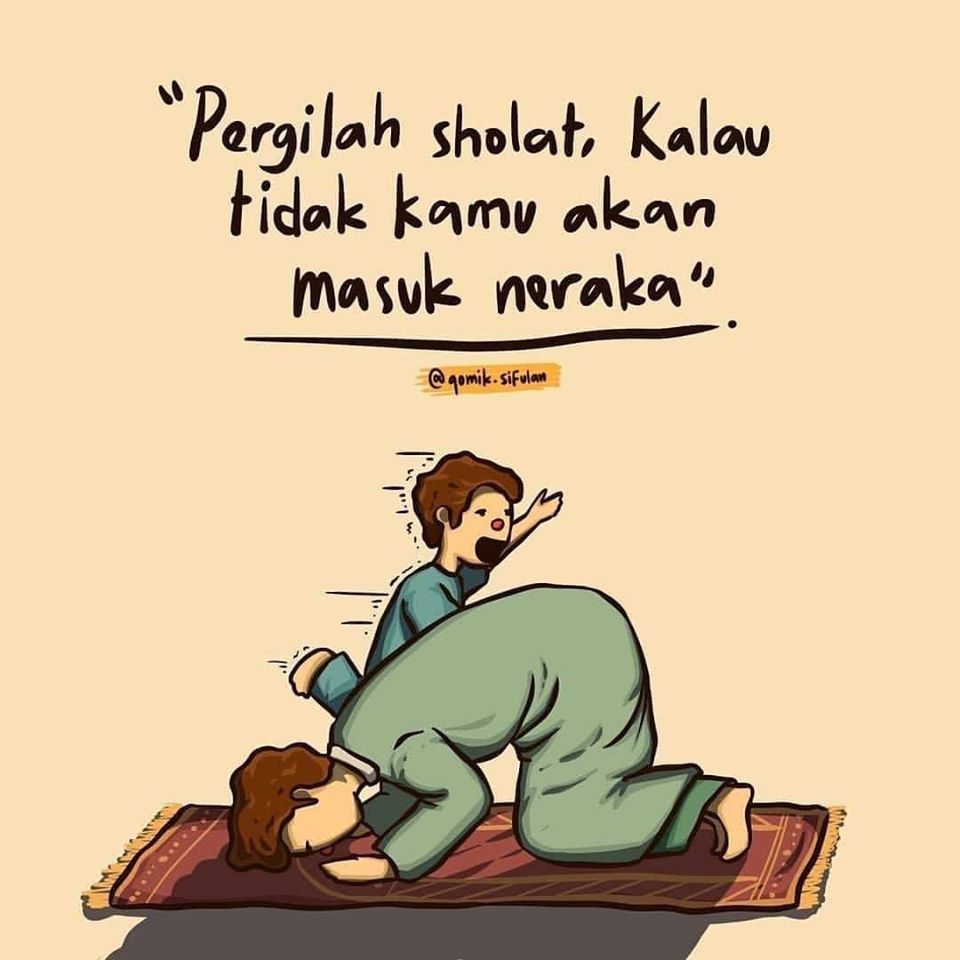 "Pergilah sholat, Kalau
tidak kamu akan
masuk neraka".
@qomik.sifulan